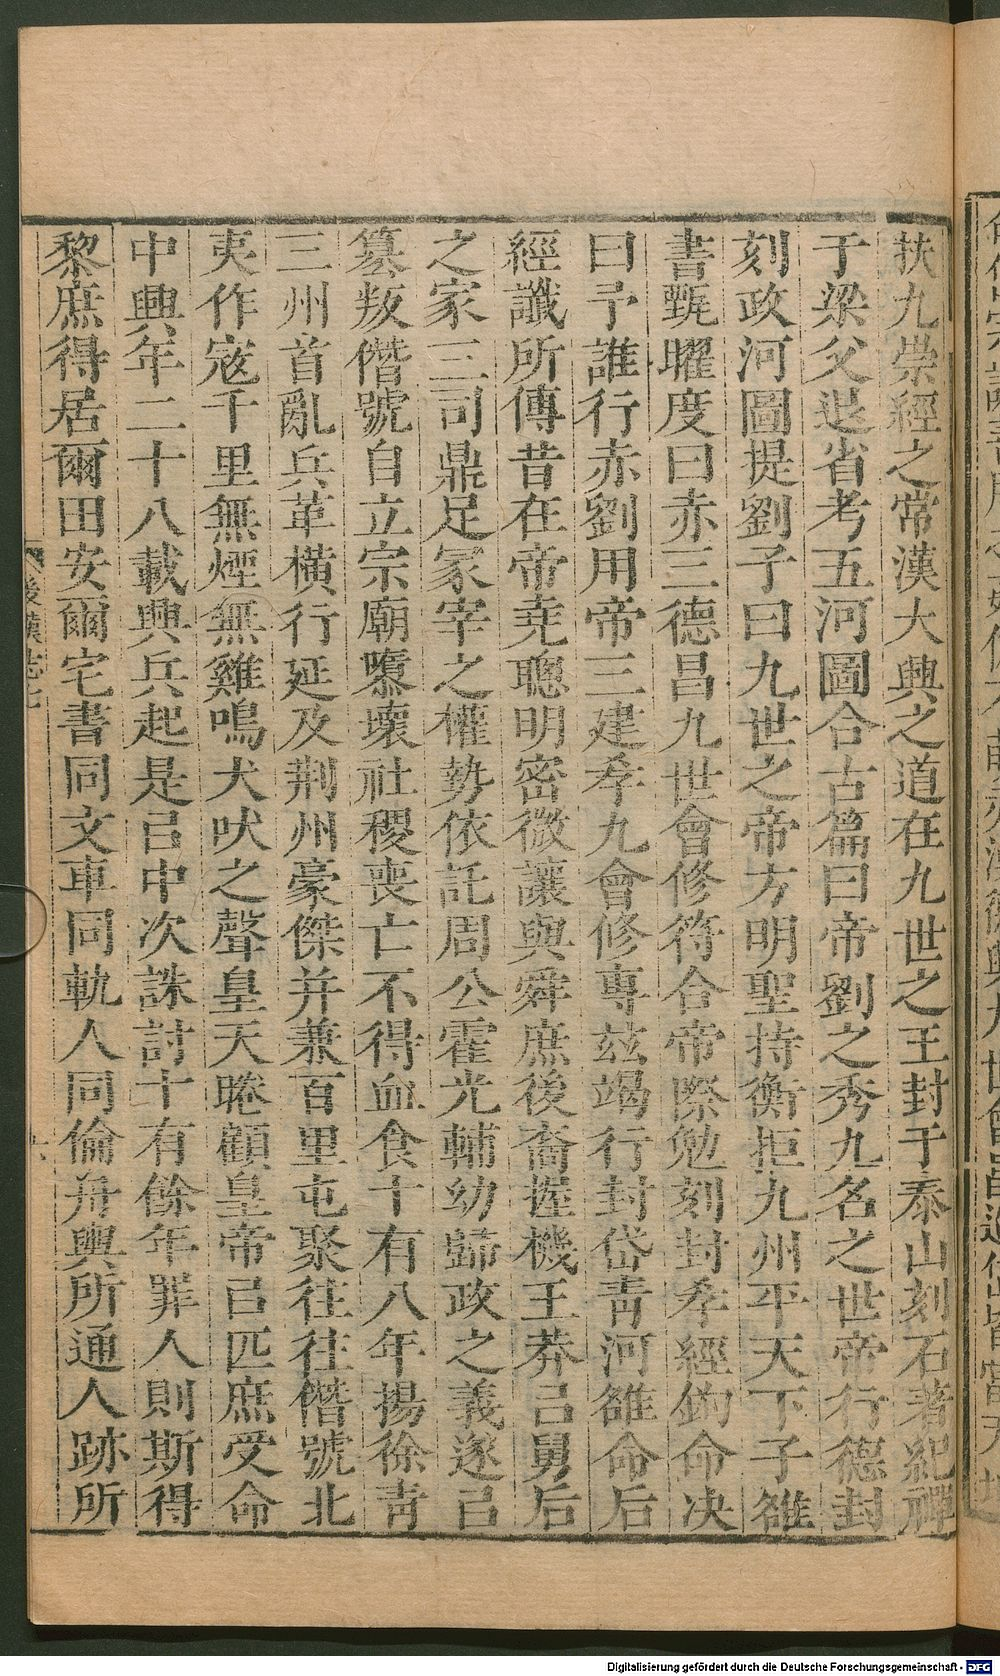 扶九崇經之常漢大興之道在九世之王封于泰山刻石著紀禪
于梁父退省考五河圖合古篇曰帝劉之秀九名之世帝行德封
刻政河圖提劉子曰九世之帝方明聖持衡拒九州平天下予雒
書甄曜度曰赤三德昌九世會修符合帝際勉刻封孝經鉤命决
曰予誰行赤劉用帝三建孝九會修專茲竭行封岱青河雒命后
經讖所傳昔在帝堯聰明密微讓與舜庶後裔握機王莽㠯舅后
之家三司鼎足冢宰之權勢依託周公霍光輔幼歸政之義遂㠯
篡叛僭號自立宗廟隳壞社稷喪亡不得血食十有八年揚徐青
三州首亂兵革橫行延及荆州豪傑并兼百里屯聚往往僭號北
夷作寇千里無煙無雞鳴犬吠之聲皇天睠顧皇帝㠯匹庶受命
中興年二十八載興兵起是㠯中次誅討十有餘年罪人則斯得
黎庶得居爾田安爾宅書同文車同軌人同倫舟輿所通人跡所
後漢志七
Digitalisierung gefördert durch die Deutsche Forschungsgemeinschaft - DFG